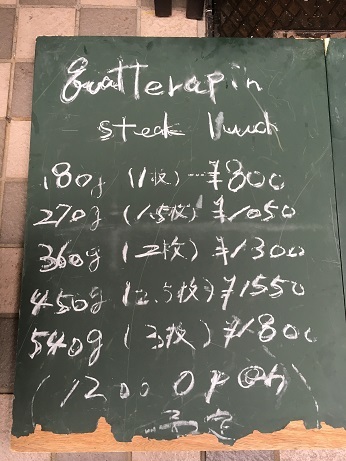 steak lunch
180g (1枚)…¥800
270g (1.5枚) ¥1050
360g (2枚) ¥1300
450g (2.5枚) ¥1550
540g (3枚) ¥1800
(1200 OPEN)
予定